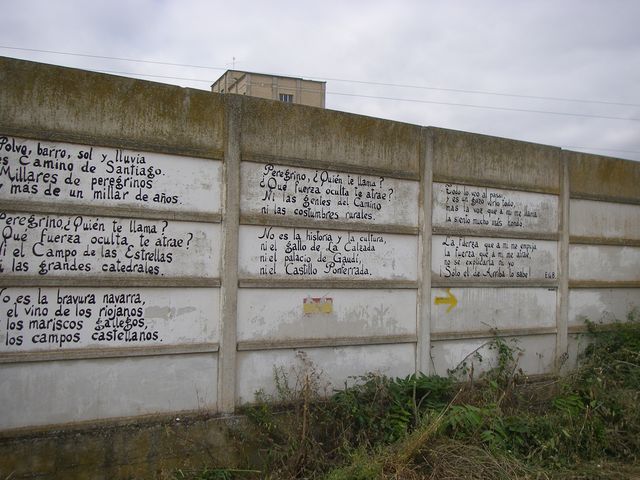 Polvo, barro, sol y lluvia
es Camino de Santiago.
Millares de peregrinos
y más de un millar de años.
Peregrino, ¿Quién te llama?
¿Qué fuerza oculta te atrae?
Ni el Campo de las Estrellas
ni las grandes catedrales.
No es la bravura navarra,
el vino de los riojanos
los mariscos gallegos,
los campos castellanos.
Peregrino, ¿Quién te llama?
¿Qué fuerza oculta te atrae?
Ni las gentes del Camino
ni las costumbres rurales.
No es la historia y la cultura,
ni el gallo de La Calzada
ni el palacio de Gaudí,
ni el Castillo Ponferrada.
Todo lo veo al pasar,
y es un gozo verlo todo,
mas la voz que a mi me llama
la siento mucho más hondo.
La fuerza que a mi me empuja
la fuerza que a mi me atrae,
no se explicarla ni yo
¡Sólo el de Arriba lo sabe! E.G.B.